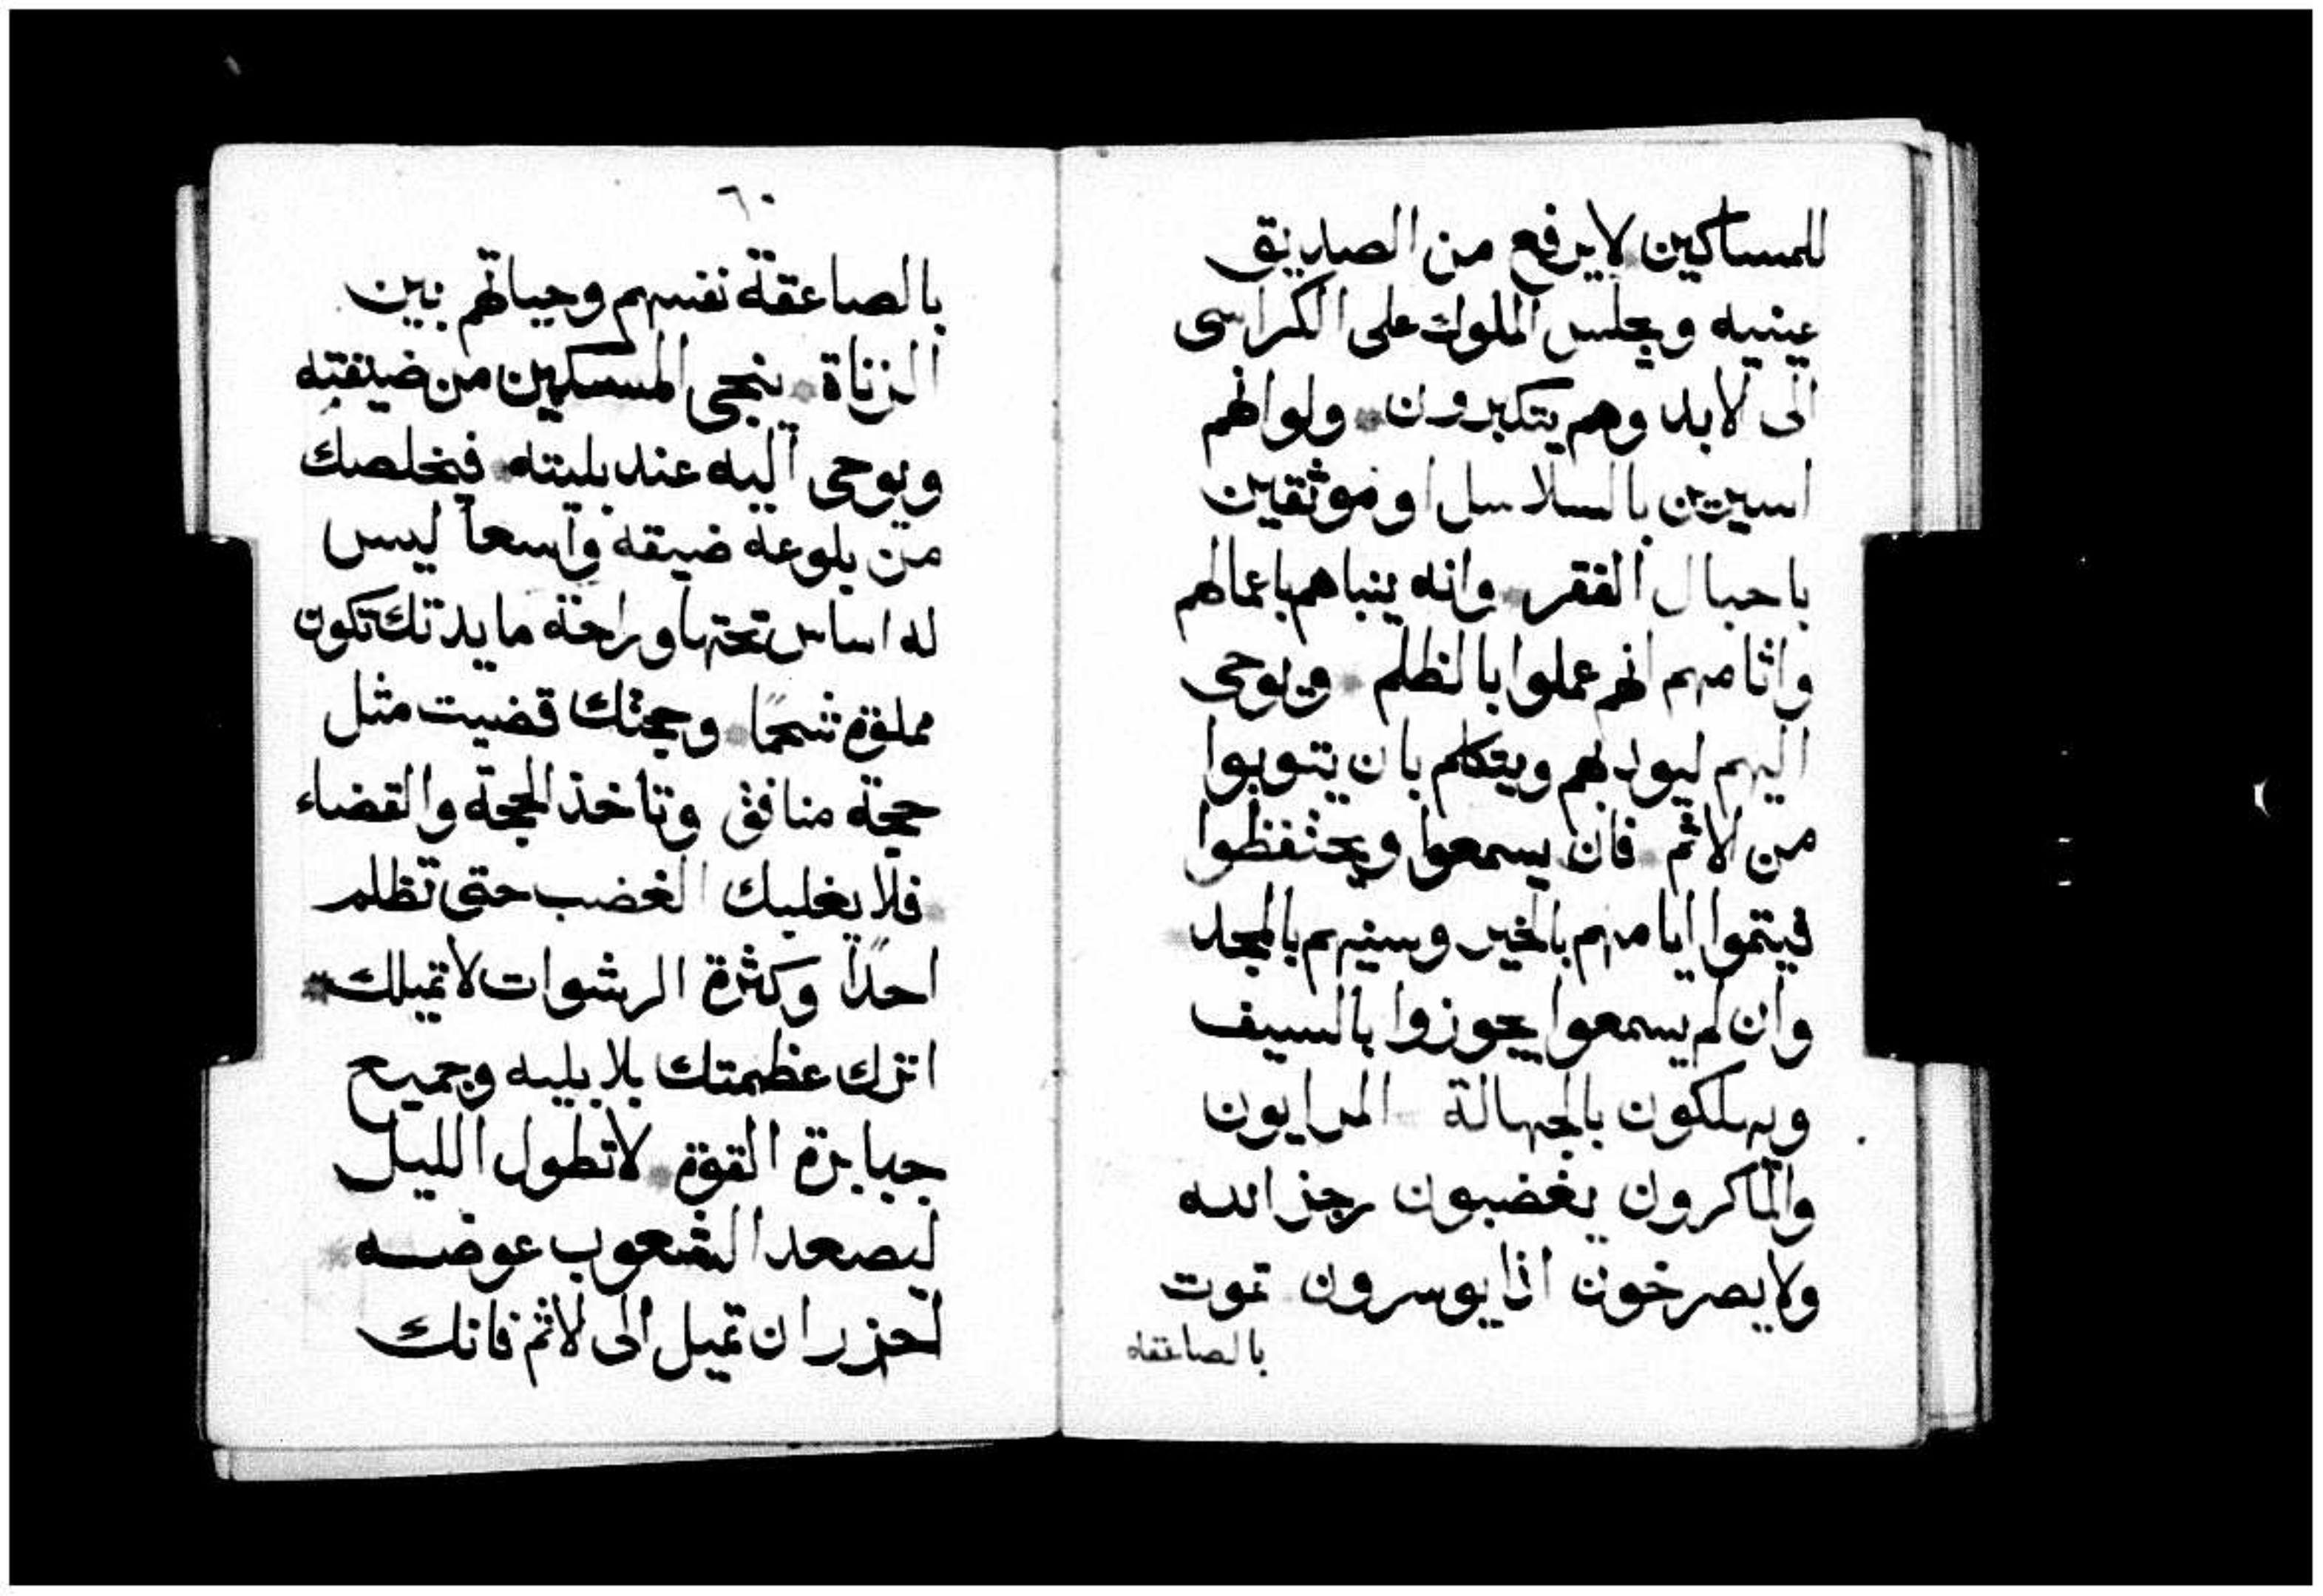 للمساكين لا يرفع من الصديق
عينيه ويجلس الملوك على الكراسى
الى لابد وهم يتكبرون ولوانهم
اسيرين بالسلاسل او موثقين
باحبال الفقر وانه ينباهم باعمالهم
واثامهم انهم عملوا بالظلم ويوحى
اليهم ليودبهم ويتكلم بان يتوبوا
من الاثم فان يسمعوا ويحتفظوا
فيتموا ايامهم بالخير وسنيهم بالمجد
وان لم يسمعوا يجوزوا بالسيف
ويهلكون بالجهالة المرايون
والماكرون يغضبون رجز الله
ولا يصرخون اذا يوسرون تموت
بالصاعقه
٦٠
بالصاعقة نفسهم وحياتهم بين
الزناة ينجى المسكين من ضيقته
ويوحى اليه عند بليته فيخلصك
من بلوعة ضيقه واسعا ليس
له اساس تحتها وراحة مايدتك تكون
مملوة شحما وحجتك قضيت مثل
حجة منافق وتاخذ الحجة والقضاء
فلا يغلبك الغضب حتى تظلم
احدا وكثرة الرشوات لا تميلك
اترك عظمتك بلا بليه وجميع
جبابرة القوة لا تطول الليل
ليصعد الشعوب عوضه
احزر ان تميل الى لاثم فانك